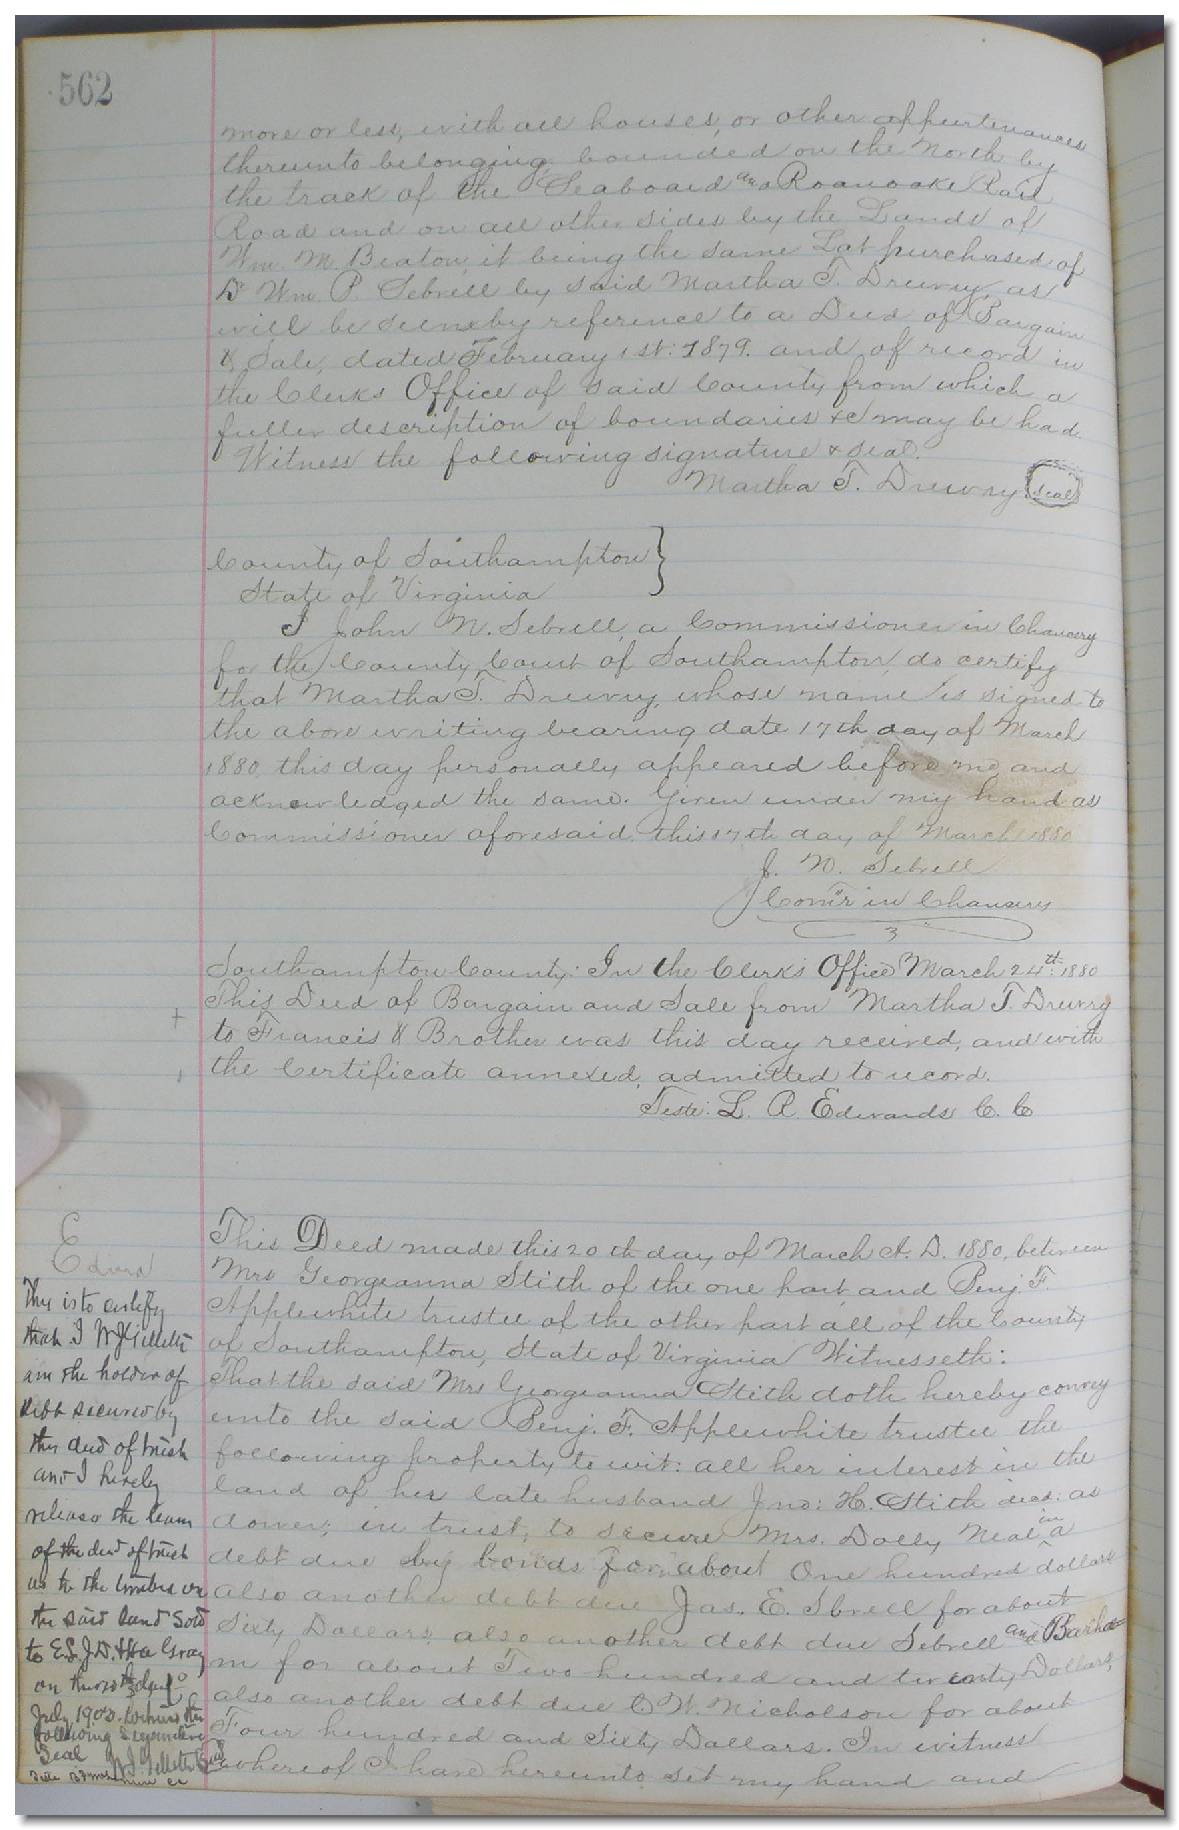 562
more or less, with all houses, or other appurtenances
thereunto belonging, bounded on the North by
the track of the Seaboard and Roanoake Rail
Road and on all other sides by the Lands of
Wm. M. Beaton, it being the same Lot purchased of
Dr Wm. P. Sebrell by said Martha T. Drewry, as
will be seen by reference to a Deed of Bargain
& Sale, dated February 1st: 1879. and of record in
the Clerks Office of said County from which a
fuller description of boundaries &c may be had.
Witness the following signature & seal.
Martha T. Drewry seal
County of Southampton }
State of Virginia
I John N. Sebrell, a Commissioner in Chancery
for the County Court of Southampton, do certify
that Martha T. Drewry, whose name is signed to
the above writing bearing date 17th day of March
1880, this day personally appeared before me, and
acknowledged the same. Given under my hand as
Commissioner aforesaid this 17th day of March 1880
J. N. Sebrell
Com'r in Chancery
Southampton County: In the Clerk's Office March 24th: 1880
This Deed of Bargain and Sale from Martha T. Drewry
to Francis & Brother was this day received, and with
the Certificate annexed, admitted to record.
Teste: L. R. Edwards C. C
This Deed made this 20th day of March A. D. 1880, between
Mrs Georgeanna Stith of the one part, and Benj. F.
Applewhite trustee of the other part all of the County
of Southampton, State of Virginia Witnesseth:
That the said Mrs Georgeanna Stith doth hereby convey
unto the said Benj. F. Applewhite trustee the
following property to wit: all her interest in the
land of her late husband Jno: H. Stith decd: as
dower; in trust, to secure Mrs. Dolly Neal in a
debt due by bonds for about One hundred dollars
also another debt due Jas. E. Sbrell for about
Sixty Dollars, also another debt due Sebrell and Barha
m for about Two hundred and twenty Dollars,
also another debt due C. W. Nicholson for about
Four hundred and Sixty Dollars. In witness
whereof I have hereunto set my hand and
E
This is to certify
that I W J Gillette
am the holder of
debt secured by
this deed of trust
and I hereby
release the lean
of the deed of trust
as to the timber on
the said land sold
to E.S. J.D. & Gray
on the day of
July 1900. Witness the
following Signature
Seal W J Gillette Seal
Teste